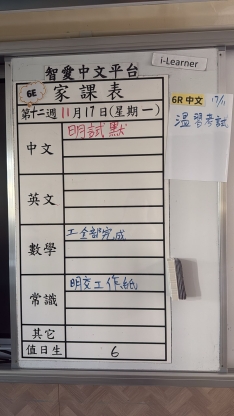 i-Learner
智愛中文平台
6E 家課表
第十二週 11月17日(星期一)
中文
明試默
英文
數學
工全部完成
常識
明交工作紙
其它
值日生
6
6R 中文 17/11
溫習考試